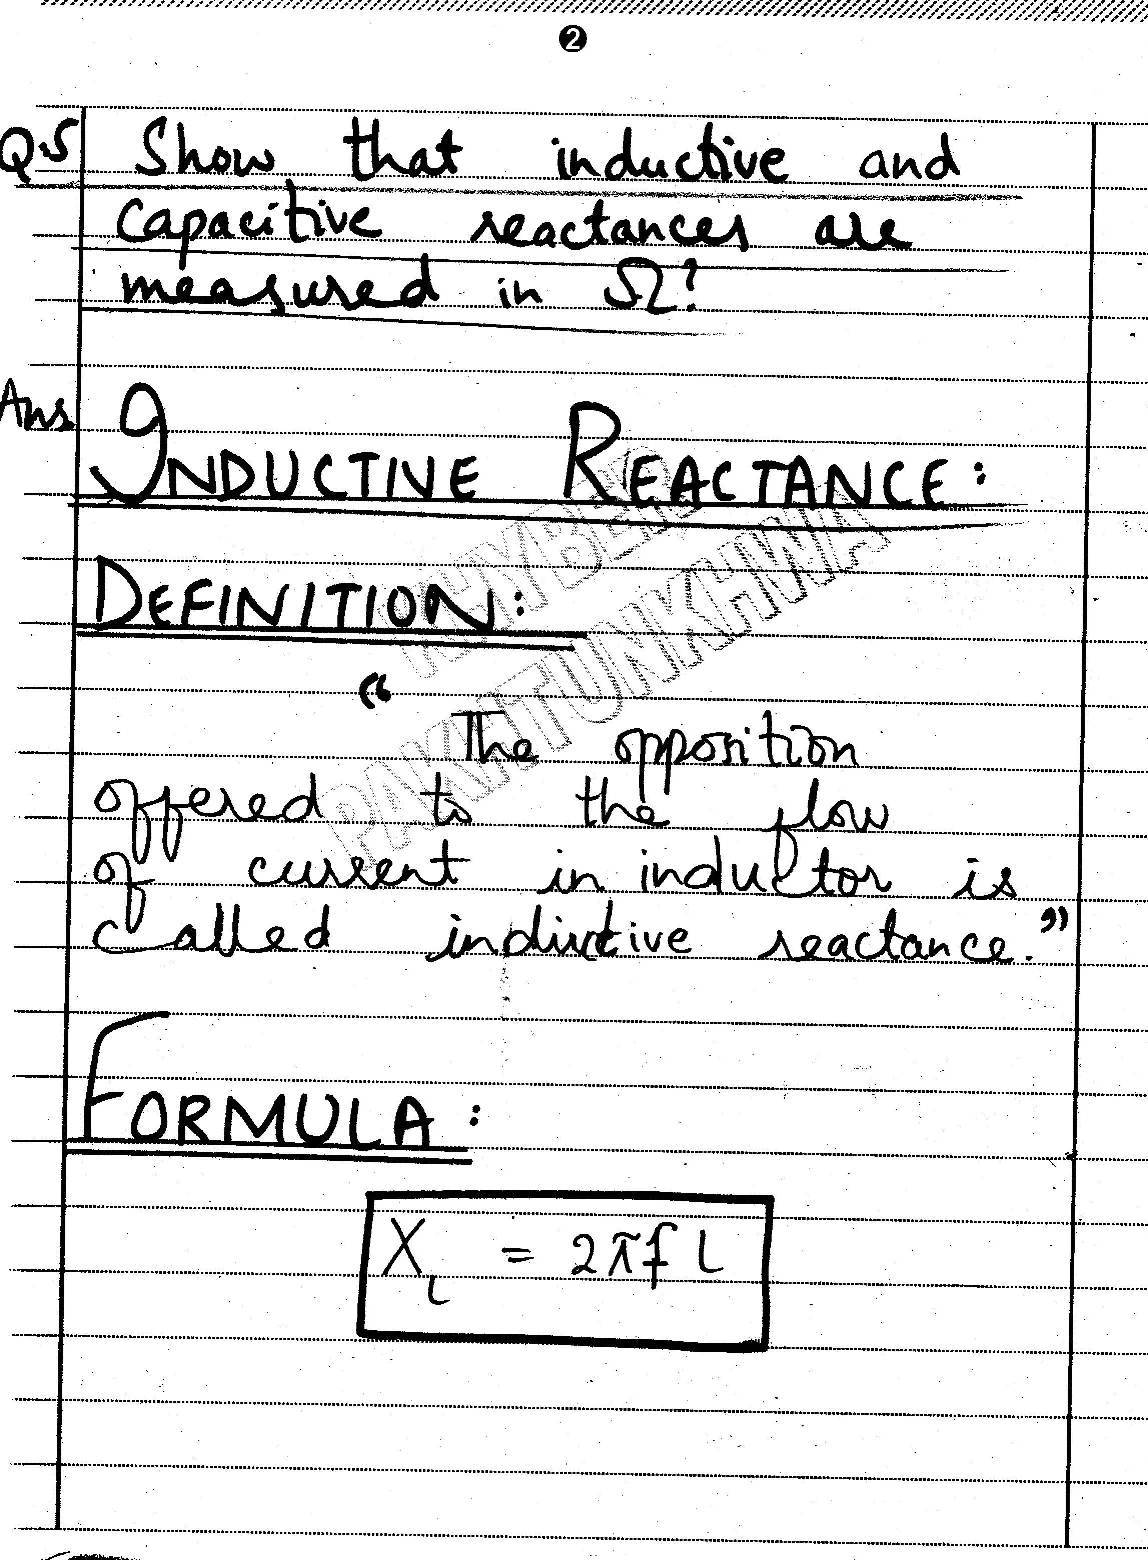 2
Q.5 Show that inductive and
capacitive reactances are
measured in Ω?
Ans. INDUCTIVE REACTANCE:
KHYBER
PAKHTUNKHWA
DEFINITION:
“
The opposition
offered to the flow
of current in inductor is
called inductive reactance.”
FORMULA:
X_L = 2πf L